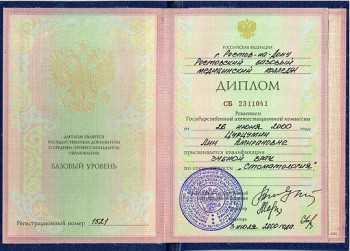 ДИПЛОМ ЯВЛЯЕТСЯ
ГОСУДАРСТВЕННЫМ ДОКУМЕНТОМ
О СРЕДНЕМ ПРОФЕССИОНАЛЬНОМ
ОБРАЗОВАНИИ
БАЗОВЫЙ УРОВЕНЬ
Регистрационный номер 1521
РОССИЙСКАЯ ФЕДЕРАЦИЯ
г. Ростов-на-Дону
Ростовский базовый
медицинский колледж
ДИПЛОМ
СБ 2311041
Решением
Государственной аттестационной комиссии
от 26 июня 2000 года
присвоена квалификация
зубной врач
"Стоматология"
июля 2000 года